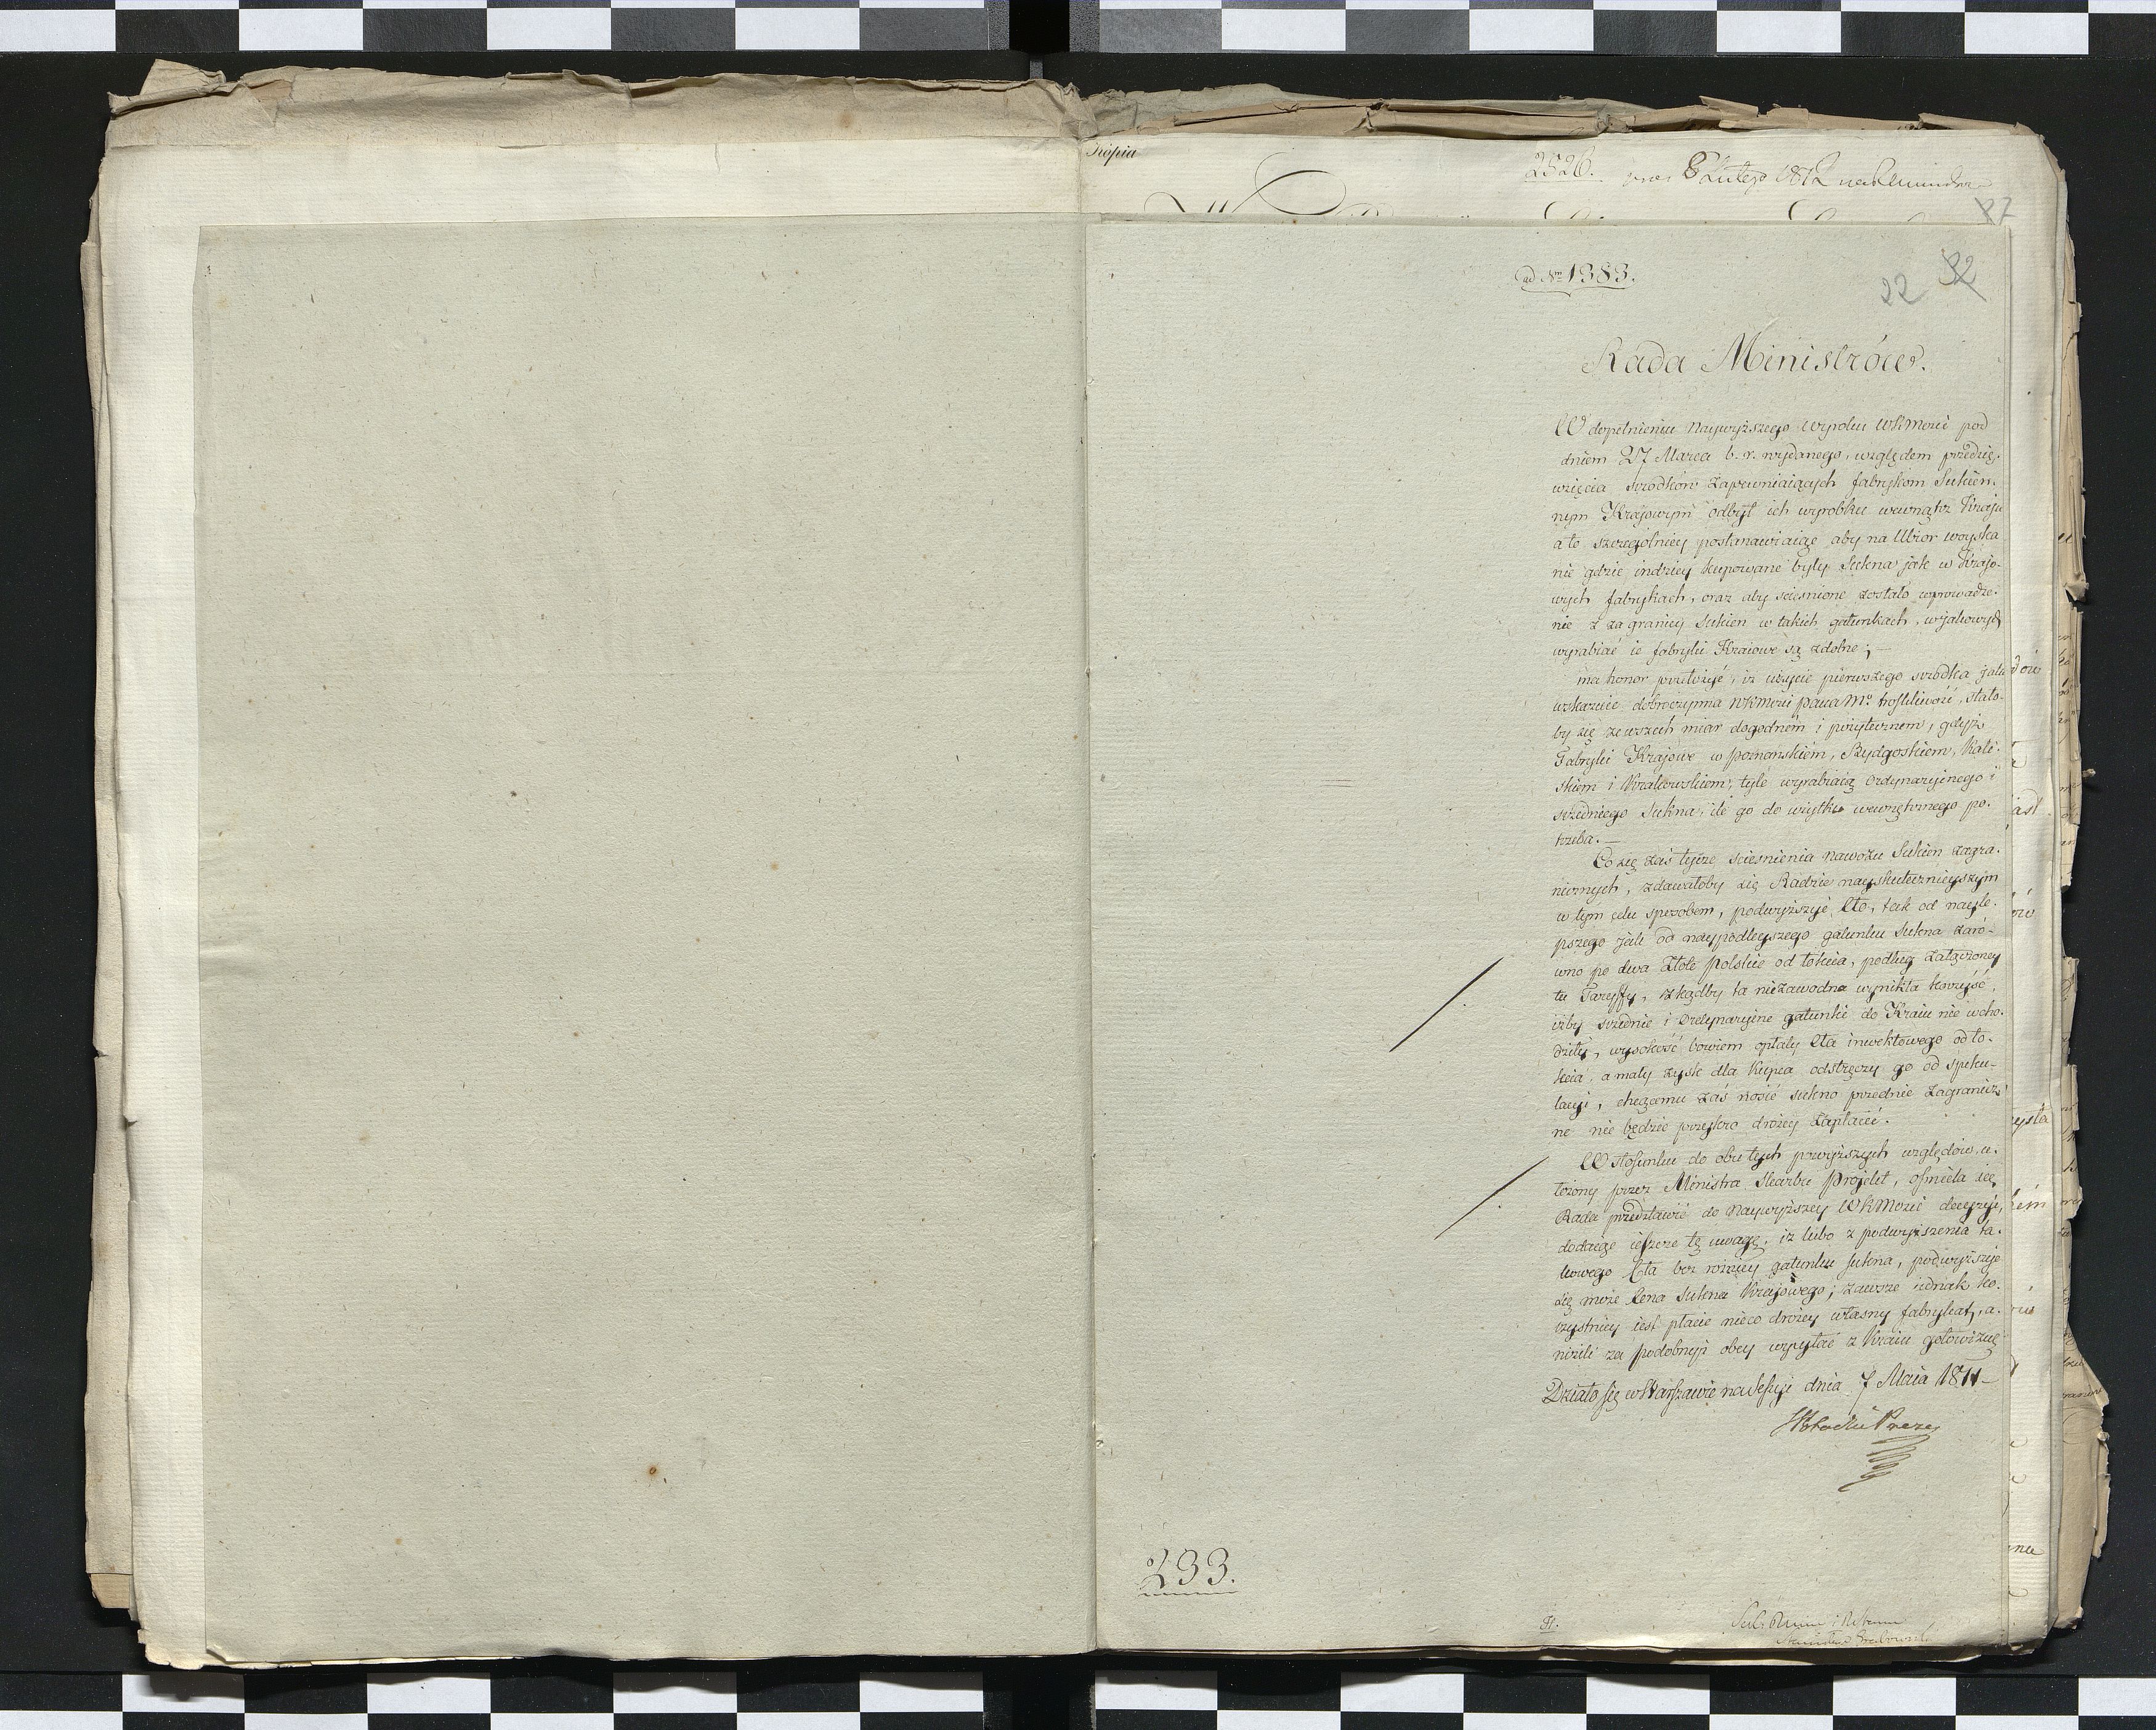 Kopia
2526.
8 Lutego 1812
87
ad Nrm 1383.
22 32
Rada Ministrów.
W dopełnieniu Naywyższego Wyroku WKMości pod
dniem 27 Marca b. r. wydanego, względem przedsię-
wzięcia srzodkow zapewniaiących fabrykom Sukien-
nym Krajowym odbyt ich wyrobku wewnątrz Kraju
a to szczególniey postanawiaiąc aby na Ubior woyska
nie gdzie indziey kupowane były Sukna jak w Krajo-
wych fabrykach, oraz aby scieśnione zostało wprowadze-
nie z zagranicy Sukien w takich gatunkach, w jakowych
wyrabiać ie fabryki Kraiowe są zdolne; —
ma honor przełożyć, iż użycie pierwszego srzodka jaki
wskazuie dobroczynna WKMości Pana Mo troskliwość, stało-
by się ze wszech miar dogodném i pożytecznem, gdyż
Fabryki Krajowe w Poznańskiem, Bydgoskiem, Kali-
skiem i Krakowskiem, tyle wyrabiaią Ordynaryinego i
srzedniego Sukna, ile go do użytku wewnętrznego po-
trzeba. —
Co się zaś tycze scieśnienia nawozu Sukien zagra-
nicznych, zdawałoby się Radzie nayskutecznieyszym
w tym celu sposobem, podwyższyć Cło, tak od nayle-
pszego jak od naypodleyszego gatunku Sukna zaró-
wno po dwa Złote Polskie od łokcia, podług załączoney
tu Taryffy, zkądby ta niezawodna wynikła korzyść,
iżby srzednie i Ordynaryine gatunki do Kraiu nie wcho-
dziły, wysokość bowiem opłaty Cła inwektowego od ło-
kcia, a mały zysk dla Kupca odstręczy go od speku-
lacyi, chcącemu zaś nosić sukno przednie zagranicz-
ne nie będzie przykro drożey zapłacić.
W stosunku do obu tych powyższych względów, u-
łożony przez Ministra Skarbu Projekt, ośmiela się
Rada przedstawić do Naywyższey WKMości decyzyi,
dodaiąc ieszcze tę uwagę, iż lubo z podwyższenia ta-
kowego Cła bez różnicy gatunku sukna, podwyższyć
się może Cena Sukna Krajowego; zawsze iednak ko-
rzystniey iest płacić nieco drożey własny fabrykat, a-
niżeli za podobnyż obcy wysyłać z Kraiu gotowiznę
Działo się w Warszawie na Sessyi dnia 7 Maia 1811 —
Potocki Prezes
233.